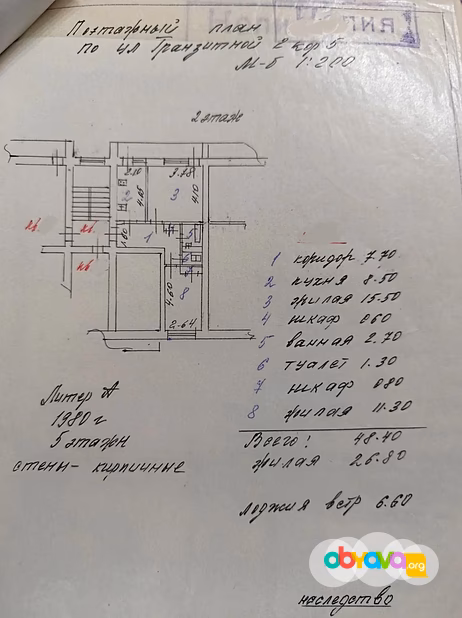 Поэтажный план
по ул Транзитной 2 кор 5
М-б 1:200
2 этаж
2.10
3.78
3
4.05
4.10
кв.
кв.
кв
1.80
1
5
6
7
4.60
8
2.64
1 коридор 7.70
2 кухня 8.50
3 жилая 15.50
4 шкаф 0.60
5 ванная 2.70
6 туалет 1.30
7 шкаф 0.80
8 жилая 11.30
Всего! 48.40
жилая 26.80
лоджия встр 6.60
Литер А
1980 г
5 этажн
стены - кирпичные
obyava.org
наследство